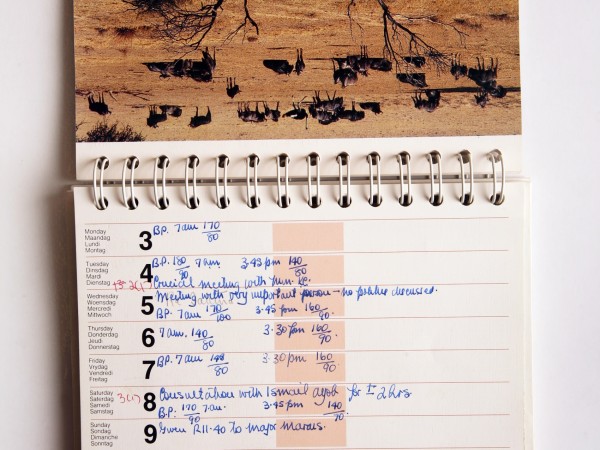 Monday
Maandag
Lundi
Montag
3
BP. 7am 170/80
Tuesday
Dinsdag
Mardi
Dienstag
4
BP. 180/90 7am. 3.45pm 140/80
Crucial meeting with
Wednesday
Woensdag
Mercredi
Mittwoch
5
Meeting with very important person – no politics discussed.
BP. 7am 170/100 3.45 pm 160/90.
Thursday
Donderdag
Jeudi
Donnerstag
6
7am. 140/80 3.30pm 160/90.
Friday
Vrydag
Vendredi
Freitag
7
BP. 7am /80 3.30pm 160/90
Saturday
Saterdag
Samedi
Samstag
8
Consultation with Ismail Ayob for ± 2 hrs
BP. 170/90 7am. 3.45pm 140/90.
Sunday
Sondag
Dimanche
Sonntag
9
Given R11.40 to major Marais.